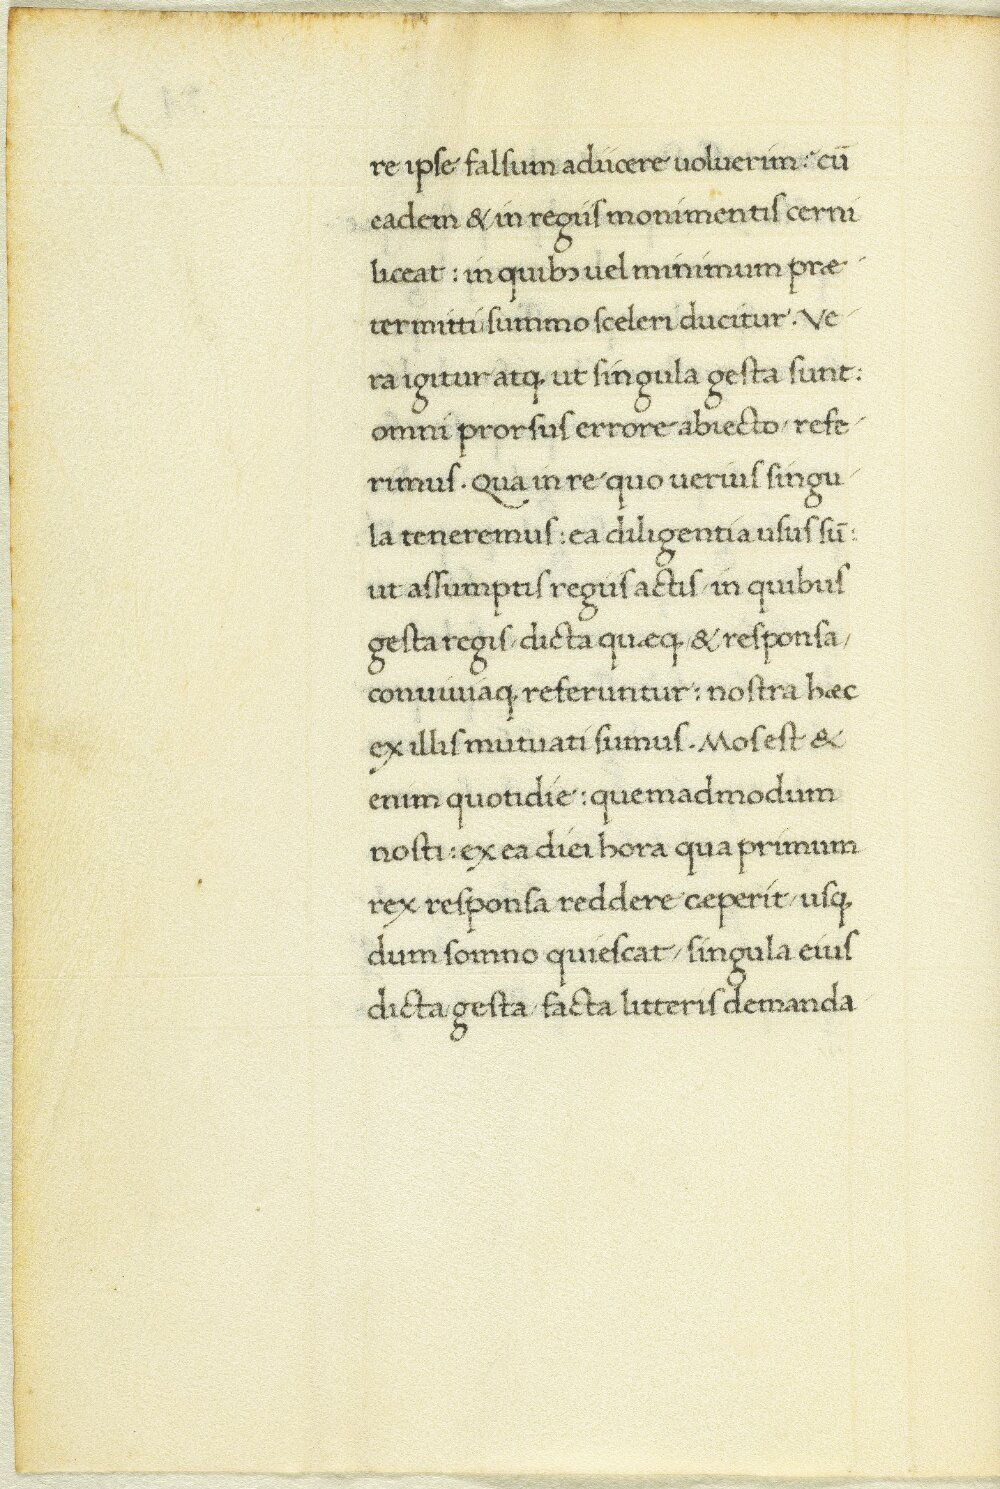 re ipse falsum adiicere uoluerim: cū
eadem & in regiis monimentis cerni
liceat: in quibꝫ uel minimum præ-
termitti summo sceleri ducitur. Ve-
ra igitur atq, ut singula gesta sunt:
omni prorsus errore abiecto/ refe-
rimus. Qua in re quo uerius singu-
la teneremus: ea diligentia usus sū:
ut assumptis regiis actis/ in quibus
gesta regis/ dicta quæq,/ & responsa/
conuiuiaq, referuntur: nostra hæc
ex illis mutuati sumus. Mos est &
enim quotidie: quemadmodum
nosti: ex ea diei hora qua primum
rex responsa reddere cæperit/ usq,
dum somno quiescat/ singula eius
dicta/ gesta/ facta litteris demanda